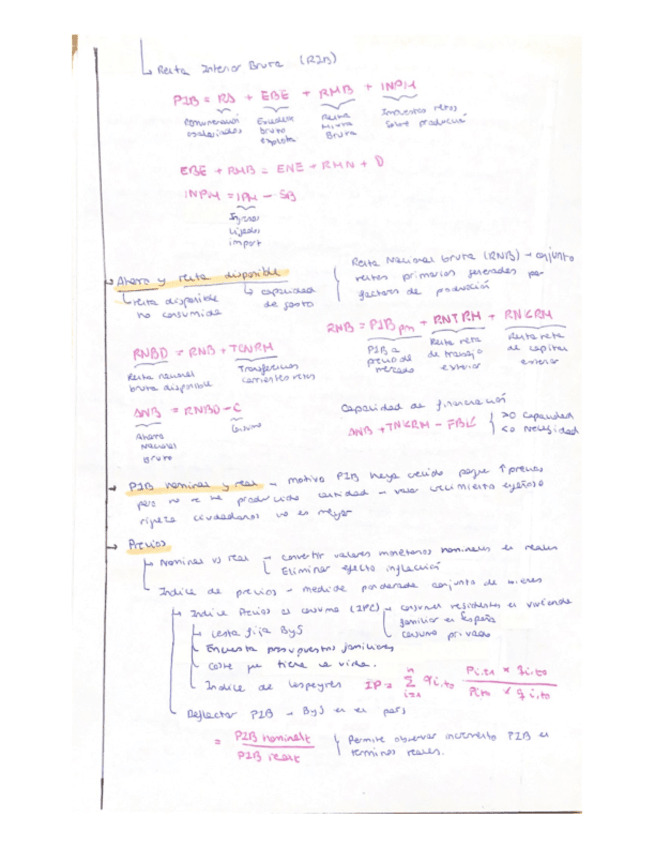 ↳ Renta Interior Bruta (RIB)
PIB = RA + EBE + RMB + INPM
Remuneración asalariados
Excedente bruto explota
Renta Mixta Bruta
Impuestos netos sobre producció
EBE + RMB = ENE + RMN + D
INPM = IPM - SB
import
→ Ahorro y renta disponible
↳ renta disponible no consumida
↳ capacidad de gasto
Renta Nacional Bruta (RNB) → conjunto rentas primarias generadas por factores de producción
RNB = PIBpm + RNTRM + RNKRM
PIB a precio de mercado
Renta neta de trabajo exterior
Renta neta de capital exterior
RNBD = RNB + TCNRM
Renta nacional bruta disponible
Transferencias corrientes netas
ANB = RNBD - C
Ahorro Nacional Bruto
Consumo
Capacidad de financiación
ANB + TNKRM - FBK
>0 Capacidad
<0 Necesidad
→ PIB nominal y real → motivo PIB haya crecido porque ↑ precios
pero no se ha producido cantidad → valor crecimiento engañoso
riqueza ciudadanos no es mayor
→ Precios
↳ Nominal vs real → convertir valores monetarios nominales en reales
Eliminar efecto inflación
Índice de precios → medida ponderada conjunto de bienes
↳ Índice Precios al consumo (IPC) →
consumen residentes en vivienda
familiar en España
consumo privado
↳ cesta fija ByS
↳ Encuesta presupuestos familiares
↳ coste que tiene la vida.
↳ Índice de Laspeyres IP = Σ
Deflactor PIB → ByS en el país
= PIB nominalt / PIB realt
Permite observar incremento PIB en
términos reales.